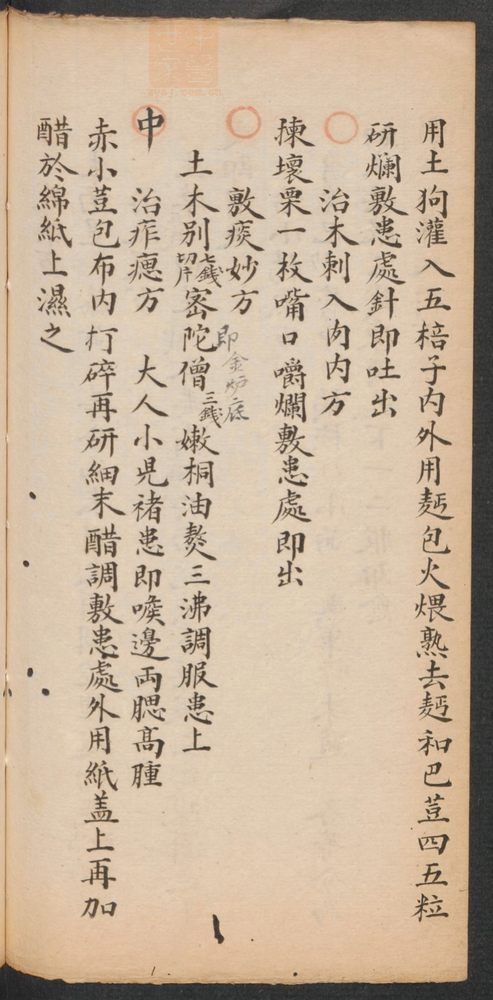 用土狗灌入五棓子内外用麪包火煨熟去麪和巴荳四五粒
研爛敷患處針即吐出
治木刺入肉内方
揀壞栗一枚嘴口嚼爛敷患處即出
敷痰妙方
即金炉底
土木别七錢切片密陀僧三錢嫩桐油熬三沸調服患上
中 治痄瘜方 大人小児禇患即喉邊両腮高腫
赤小荳包布内打碎再研細末醋調敷患處外用紙盖上再加
醋於綿紙上濕之